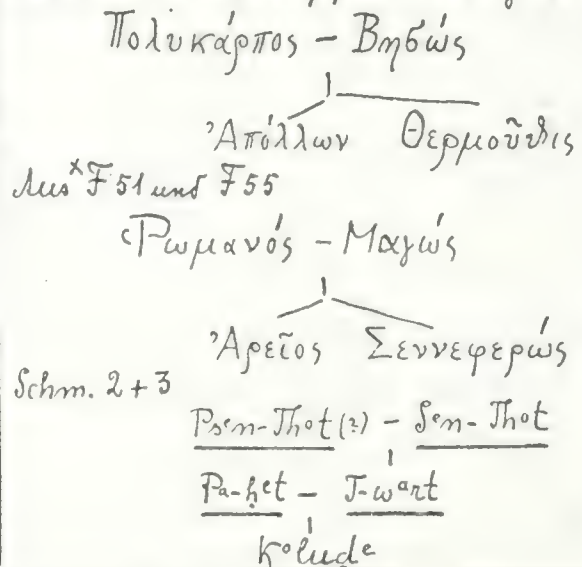 Πολυκάρπος – Βησώς
Ἀπόλλων Θερμοῦθις
Aus F 51 und F 55
Ῥωμανός – Μαγώς
Ἀρεῖος Σεννεφερώς
Schm. 2 + 3
Psen-Thot (?) – Sen-Thot
Pa-ḥet – T-want
Kolude